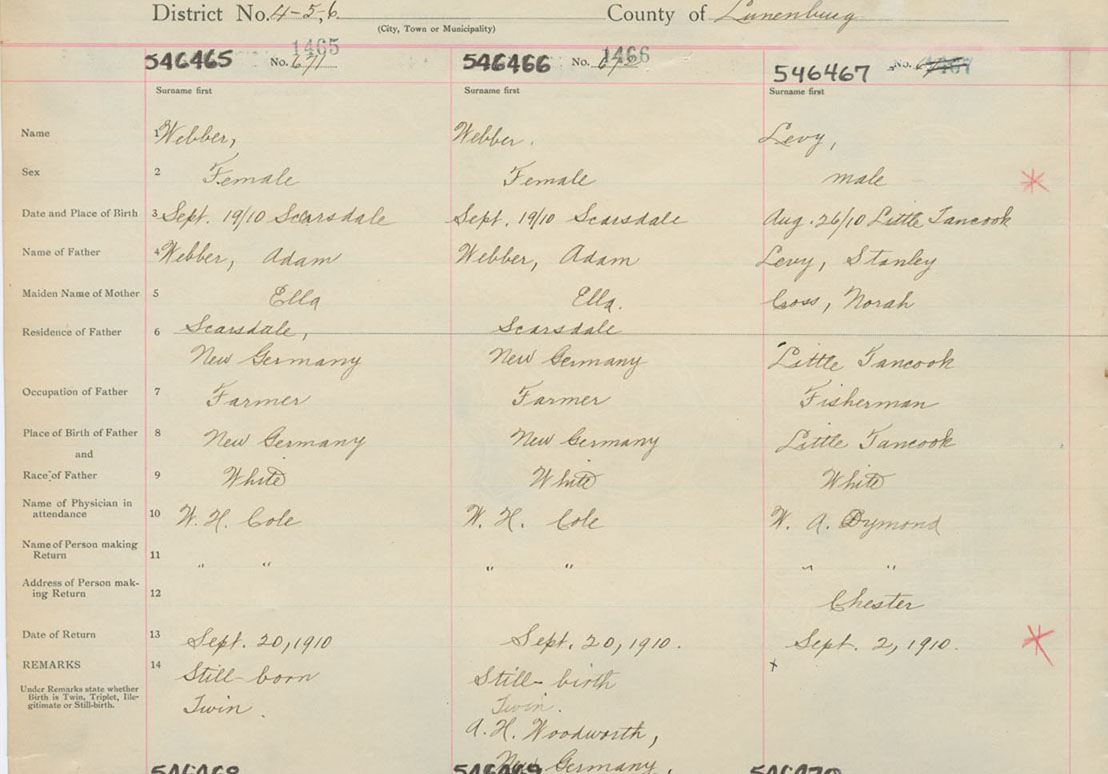 District No. 4-5, 6. County of Lunenburg
(City, Town or Municipality)
546465 No. 671 1465 546466 No. 1466 546467 No.
Surname first Surname first Surname first
Name 1 Webber, Webber. Levy,
Sex 2 Female Female male
Date and Place of Birth 3 Sept. 19/10 Scarsdale Sept. 19/10 Scarsdale Aug. 26/10 Little Tancook
Name of Father 4 Webber, Adam Webber, Adam Levy, Stanley
Maiden Name of Mother 5 Ella Ella. Coss, Norah
Residence of Father 6 Scarsdale, Scarsdale
New Germany New Germany Little Tancook
Occupation of Father 7 Farmer Farmer Fisherman
Place of Birth of Father 8 New Germany New Germany Little Tancook
and
Race of Father 9 White White White
Name of Physician in
attendance 10 W. H. Cole W. H. Cole W. A. Dymond
Name of Person making
Return 11 " " " " " "
Address of Person mak-
ing Return 12 Chester
Date of Return 13 Sept. 20, 1910 Sept. 20, 1910. Sept. 2, 1910.
REMARKS 14 Still-born Still-birth
Under Remarks state whether
Birth is Twin, Triplet, Ille-
gitimate or Still-birth.
Twin. Twin.
A. H. Woodworth,
New Germany,
546468 546469 546470